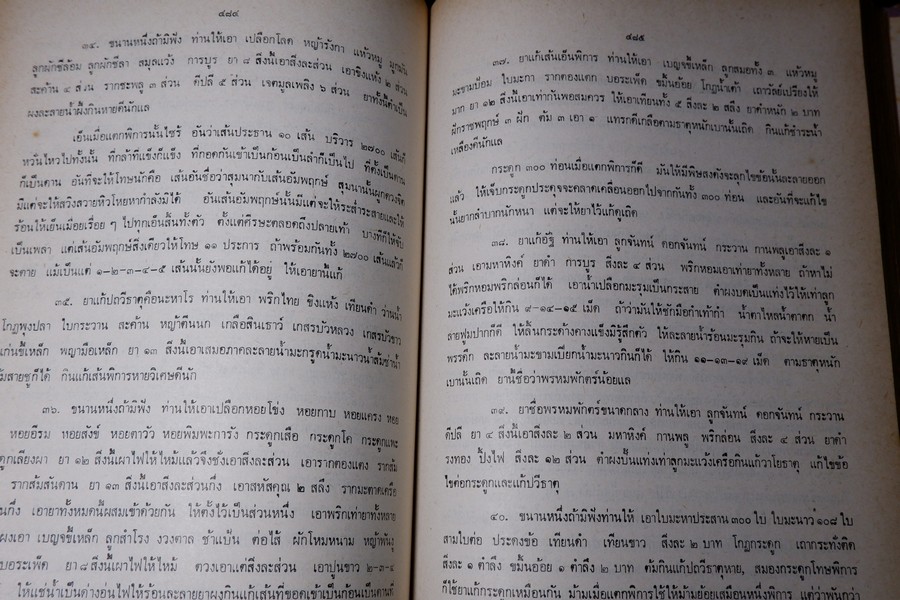 ๔๘๔
๓๔. ขนานหนึ่งถ้ามิฟัง ท่านให้เอา เปลือกโลด หญ้ารังกา แห้วหมู มูกมัน
ลูกผักชีล้อม ลูกผักชีลา สมุลแว้ง การบูร ยา ๘ สิ่งนี้เอาสิ่งละส่วน เอาขิงแห้ง ๒ ส่วน
สะค้าน ๔ ส่วน รากชะพลู ๓ ส่วน ดีปลี ๕ ส่วน เจตมูลเพลิง ๖ ส่วน ยาทั้งนี้ตำเป็น
ผงละลายน้ำผึ้งกินหายดีนักแล
เอ็นเมื่อแตกพิการนั้นไซร้ อันว่าเส้นประธาน ๑๐ เส้น บริวาร ๒๗๐๐ เส้นก็
หวั่นไหวไปทั้งนั้น ที่กล้าที่แข็งก็แข็ง ที่กอดกันเข้าเป็นก้อนเป็นลำก็เป็นไป ที่ตั้งเป็นดาน
ก็เป็นดาน อันที่จะให้โทษนักคือ เส้นอันชื่อว่าสุมนากับเส้นอัมพฤกษ์ สุมนานั้นผูกดวงจิต
มีแต่จะให้สวิงสวายหัวใหยหากำลังมิได้ อันเส้นอัมพฤกษ์นั้นมีแต่จะให้ระส่ำระสายและให้
ร้อนให้เย็นเมื่อยเรื่อย ๆ ไปทุกเอ็นสิ้นทั้งตัว ตั้งแต่ศีรษะตลอดถึงปลายเท้า บางทีก็ให้จับ
เป็นเพลา แต่เส้นอัมพฤกษ์สิ่งเดียวให้โทษ ๑๑ ประการ ถ้าพร้อมกันทั้ง ๒๗๐๐ เส้นแล้วก็
จะตาย แม้เป็นแต่ ๑-๒-๓-๔-๕ เส้นนั้นยังพอแก้ได้อยู่ ให้เอายานี้แก้
๓๕. ยาแก้ปถวีธาตุคือนะหาโร ท่านให้เอา พริกไทย ขิงแห้ง เทียนดำ ว่านน้ำ
โกฏพุงปลา ใบกระวาน สะค้าน หญ้าตีนนก เกลือสินเธาว์ เกสรบัวหลวง เกสรบัวขาว
แก่นขี้เหล็ก พญามือเหล็ก ยา ๑๓ สิ่งนี้เอาเสมอภาคละลายน้ำมะกรูดน้ำมะนาวน้ำส้มซ่าน้ำ
ส้มสายชูก็ได้ กินแก้เส้นพิการหายวิเศษดีนัก
๓๖. ขนานหนึ่งถ้ามิฟัง ท่านให้เอาเปลือกหอยโข่ง หอยกาบ หอยแครง หอย
หอยอีรม หอยสังข์ หอยตาวัว หอยพิมพะการัง กระดูกเสือ กระดูกโค กระดูกแพะ
ดูกเลียงผา ยา ๑๒ สิ่งนี้เผาไฟให้ไหม้แล้วจึงชั่งเอาสิ่งละส่วน เอารากตองแตง รากส้ม
รากส้มสันดาน ยา ๑๓ สิ่งนี้เอาสิ่งละส่วนกึ่ง เอาสหัสคุณ ๒ สลึง รากมะตาดเครือ
นกึ่ง เอายาทั้งหมดนี้ผสมเข้าด้วยกัน ให้ตั้งไว้เป็นส่วนหนึ่ง เอาพริกเท่ายาทั้งหลาย
ผงเอา เบญจขี้เหล็ก ลูกสำโรง งวงตาล ชำแป้น ต่อไส้ ผักโหมหนาม หญ้าพันงู
บอระเพ็ด ยา ๘ สิ่งนี้เผาไฟให้ไหม้ ตวงเอาแต่สิ่งละส่วน เอาปูนขาว ๒-๓-๑
ให้แช่น้ำเป็นด่างอุ่นไฟให้ร้อนละลายยาผงกินแก้เส้นที่ขอดเข้าเป็นก้อนเป็นดานก็ดี
๔๘๕
๓๗. ยาแก้เส้นเอ็นพิการ ท่านให้เอา เบญจขี้เหล็ก ลูกสมอทั้ง ๓ แห้วหมู
มะขามป้อม ใบมะกา รากตองแตก บอระเพ็ด ขมิ้นอ้อย โกฏน้ำเต้า เถาวัลย์เปรียงให้
มาก ยา ๑๒ สิ่งนี้เอาเท่ากันพอสมควร ให้เอาเทียนทั้ง ๕ สิ่งละ ๒ สลึง ยาดำหนัก ๒ บาท
ฝักราชพฤกษ์ ๓ ฝัก ต้ม ๓ เอา ๑ แทรกดีเกลือตามธาตุหนักเบานั้นเถิด กินแก้ชำระน้ำ
เหลืองดีนักแล
กระดูก ๓๐๐ ท่อนเมื่อแตกพิการก็ดี มันให้มีพิษสงดังจะลุกไขข้อนั้นละลายออก
แล้ว ให้เจ็บกระดูกประดุจจะคลาดเคลื่อนออกไปจากกันทั้ง ๓๐๐ ท่อน และอันที่จะแก้ไข
นั้นยากลำบากนักหนา แต่จะให้ยาไว้แก้ดูเถิด
๓๘. ยาแก้อัฐิ ท่านให้เอา ลูกจันทน์ ดอกจันทน์ กระวาน กานพลูเอาสิ่งละ ๑
ส่วน เอามหาหิงค์ ยาดำ การบูร สิ่งละ ๔ ส่วน พริกหอมเอาเท่ายาทั้งหลาย ถ้าหาไม่
ได้พริกหอมพริกล่อนก็ได้ เอาน้ำเปลือกมะรุมเป็นกระสาย ตำผงบดเป็นแท่งไว้ให้เท่าลูก
มะแว้งเครือให้กิน ๙-๑๔-๑๕ เม็ด ถ้าว่ามันให้ชักมือกำเท้ากำ น้ำตาไหลน้ำตาตก น้ำ
ลายฟูมปากก็ดี ให้ลิ้นกระด้างคางแข็งมิรู้สึกตัว ให้ละลายน้ำร้อนมะรุมกิน ถ้าจะให้หายเป็น
พรรดึก ละลายน้ำมะขามเปียกน้ำมะนาวกินก็ได้ ให้กิน ๑๑-๑๓-๑๙ เม็ด ตามธาตุหนัก
เบานั้นเถิด ยานี้ชื่อว่าพรหมพักตร์น้อยแล
๓๙. ยาชื่อพรหมพักตร์ขนาดกลาง ท่านให้เอา ลูกจันทน์ ดอกจันทน์ กระวาน
ดีปลี ยา ๔ สิ่งนี้เอาสิ่งละ ๒ ส่วน มหาหิงค์ กานพลู พริกล่อน สิ่งละ ๔ ส่วน ยาดำ
รงทอง ปิ้งไฟ สิ่งละ ๑๒ ส่วน ตำผงปั้นแท่งเท่าลูกมะแว้งเครือกินแก้วาโยธาตุ แก้ไขข้อ
ไขต่อกระดูกและแก้ปวีธาตุ
๔๐. ขนานหนึ่งถ้ามิฟังท่านให้ เอาใบมะหาประสาน ๓๐๐ ใบ ใบมะนาว ๑๐๘ ใบ
สามใบต่อ ประตงข้อ เทียนดำ เทียนขาว สิ่งละ ๒ บาท โกฏกระดูก เถากระทั่งติด
สิ่งละ ๑ ตำลึง ขมิ้นอ้อย ๑ ตำลึง ๒ บาท ต้มกินแก้ปถวีธาตุหาย, สมองกระดูกโทษพิการ
ก็ใช้ยาแก้กระดูกเหมือนกัน ม้ามเมื่อแตกพิการใช้ให้ม้ามย้อยเสมือนหนึ่งพิการ แต่ว่าพันกว่า